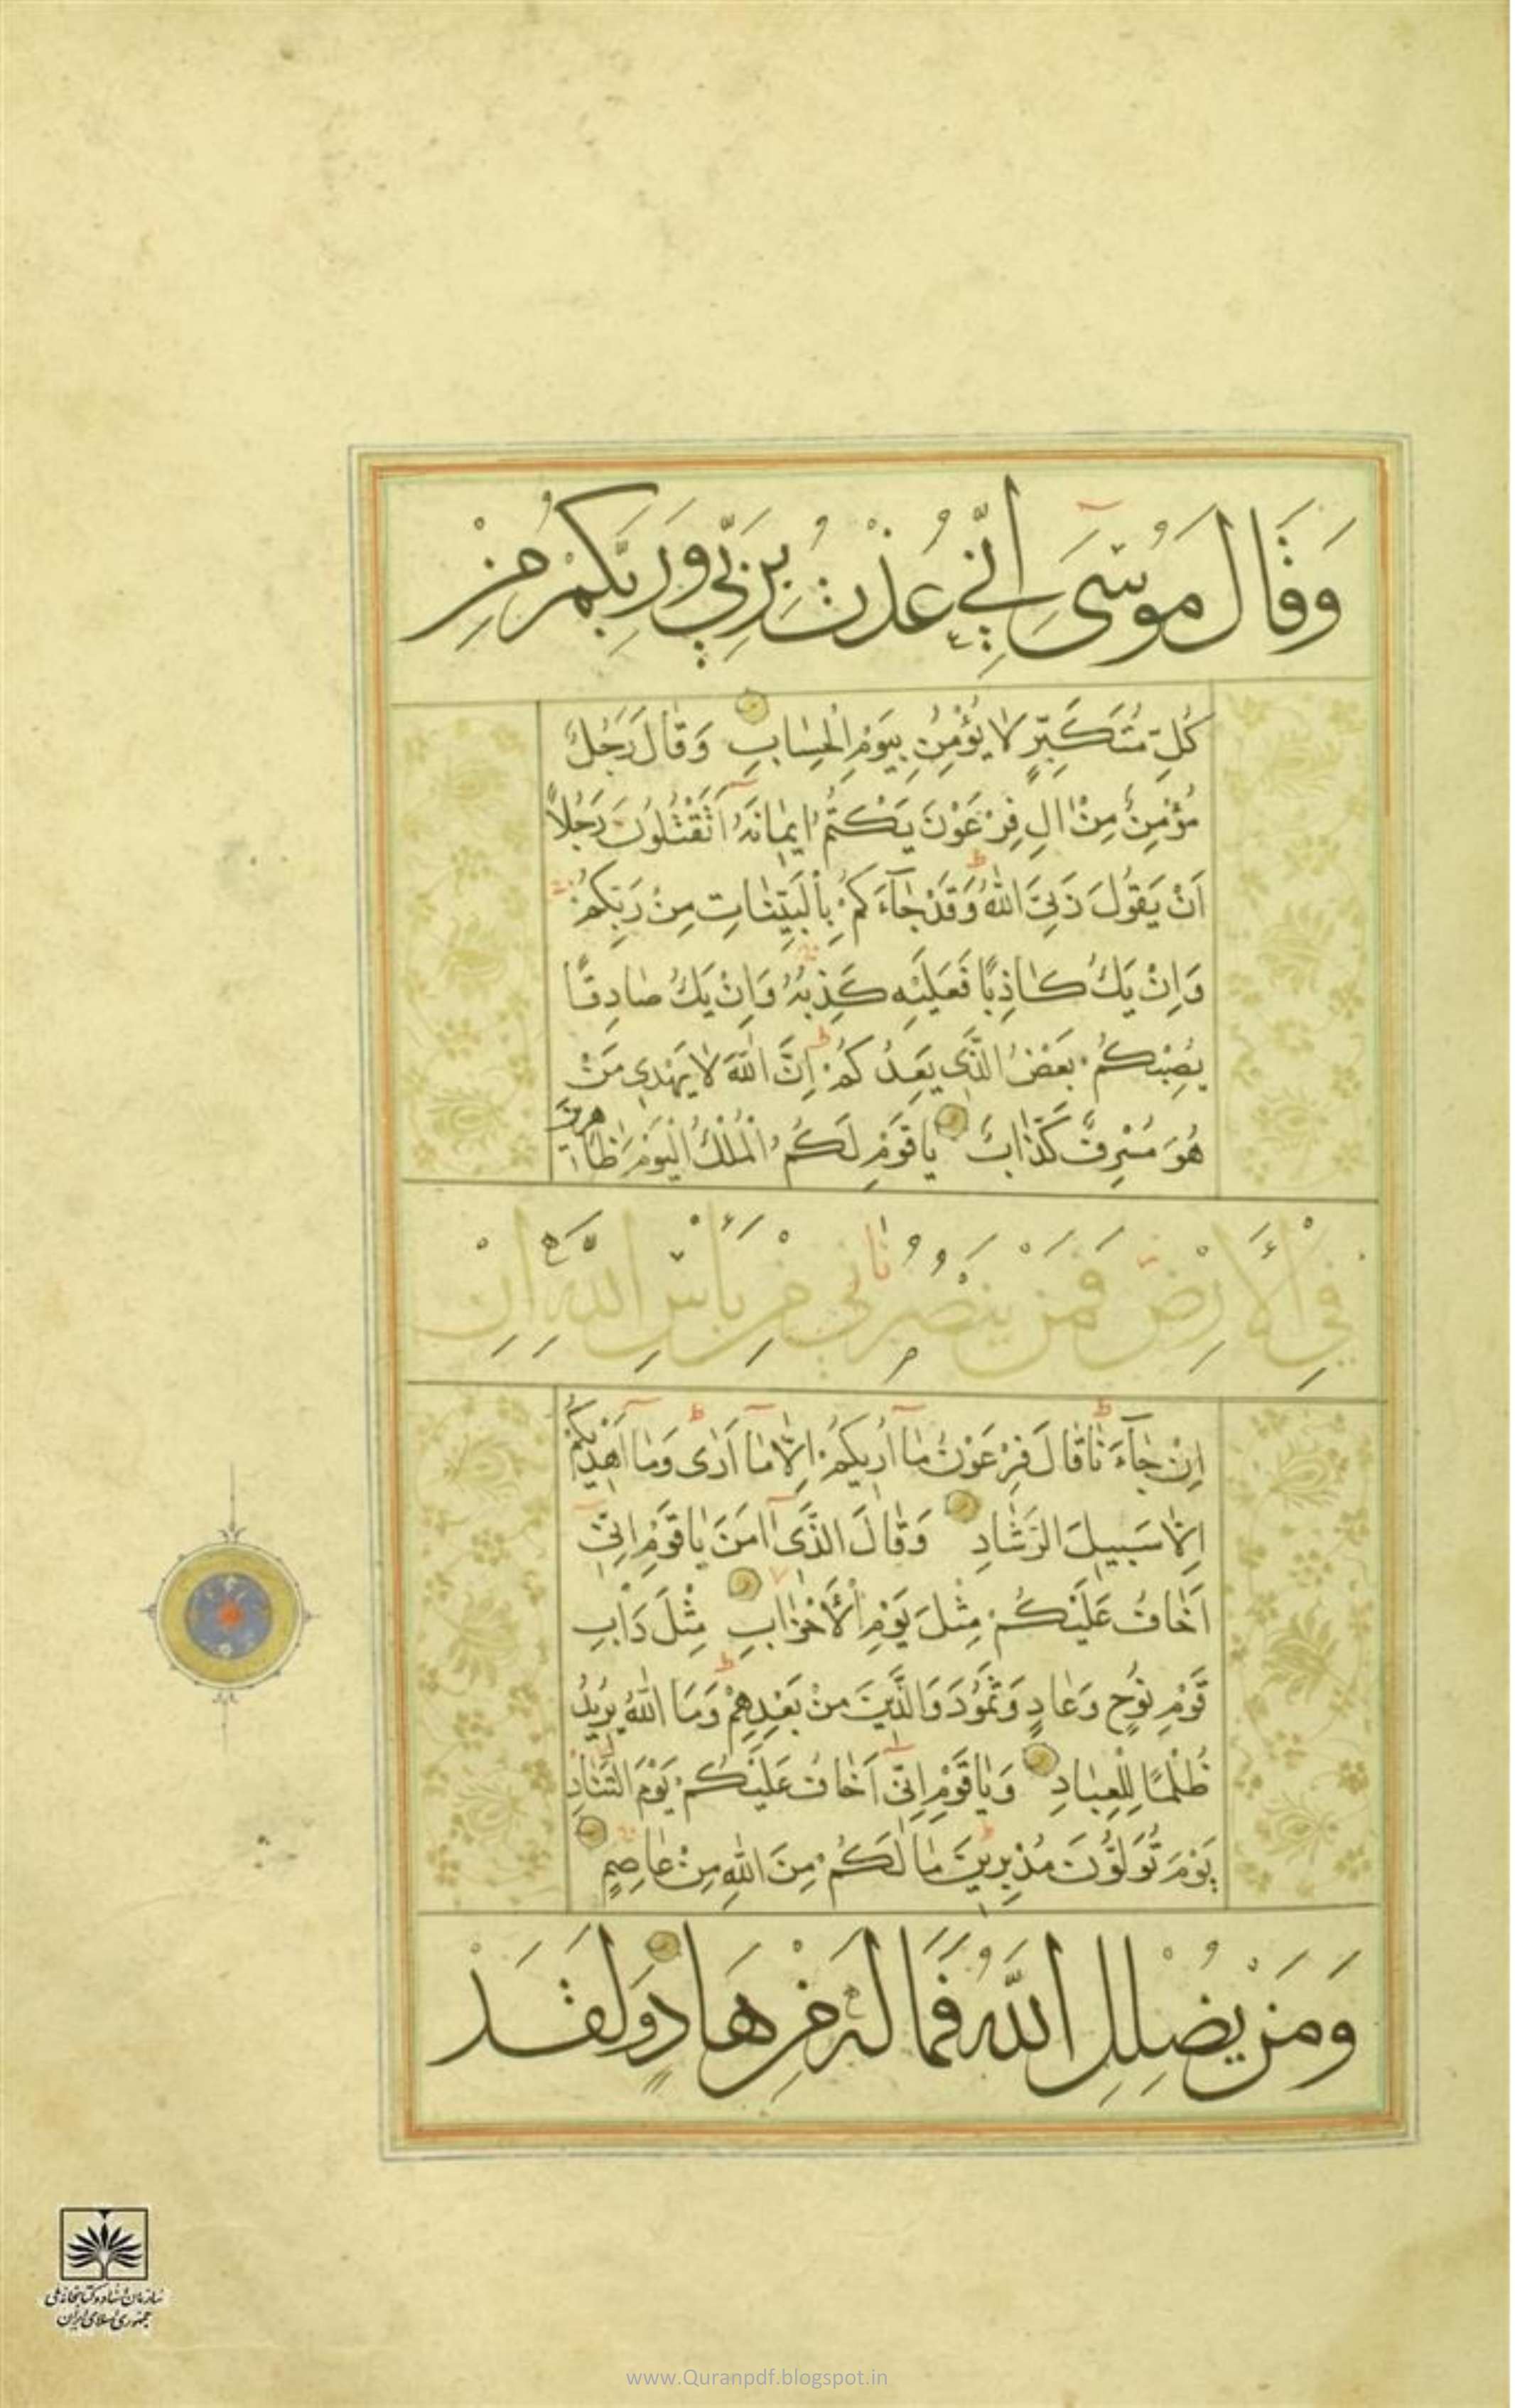 وَقَالَ مُوسَىٰ اِنّى عُذْتُ بِرَبّى وَرَبِّكُمْ مِنْ
كُلِّ مُتَكَبِّرٍ لَا يُؤْمِنُ بِيَوْمِ الْحِسَابِ وَقَالَ رَجُلٌ
مُؤْمِنٌ مِنْ اٰلِ فِرْعَوْنَ يَكْتُمُ ايمَانَهُ اَتَقْتُلُونَ رَجُلًا
اَنْ يَقُولَ رَبِّىَ اللّٰهُ وَقَدْ جَآءَكُمْ بِالْبَيِّنَاتِ مِنْ رَبِّكُمْ
وَاِنْ يَكُ كَاذِبًا فَعَلَيْهِ كَذِبُهُ وَاِنْ يَكُ صَادِقًا
يُصِبْكُمْ بَعْضُ الَّذى يَعِدُكُمْ اِنَّ اللّٰهَ لَا يَهْدى مَنْ
هُوَ مُسْرِفٌ كَذَّابٌ يَا قَوْمِ لَكُمُ الْمُلْكُ الْيَوْمَ ظَاهِرينَ
فِى الْاَرْضِ فَمَنْ يَنْصُرُنى مِنْ بَأْسِ اللّٰهِ اِنْ
اِنْ جَآءَنَا قَالَ فِرْعَوْنُ مَا اُريكُمْ اِلَّا مَا اَرٰى وَمَا اَهْديكُمْ
اِلَّا سَبيلَ الرَّشَادِ وَقَالَ الَّذى اٰمَنَ يَا قَوْمِ اِنّى
اَخَافُ عَلَيْكُمْ مِثْلَ يَوْمِ الْاَحْزَابِ مِثْلَ دَأْبِ
قَوْمِ نُوحٍ وَعَادٍ وَثَمُودَ وَالَّذينَ مِنْ بَعْدِهِمْ وَمَا اللّٰهُ يُريدُ
ظُلْمًا لِلْعِبَادِ وَيَا قَوْمِ اِنّى اَخَافُ عَلَيْكُمْ يَوْمَ التَّنَادِ
يَوْمَ تُوَلُّونَ مُدْبِرينَ مَا لَكُمْ مِنَ اللّٰهِ مِنْ عَاصِمٍ
وَمَنْ يُضْلِلِ اللّٰهُ فَمَا لَهُ مِنْ هَادٍ وَلَقَدْ
سازمان اسناد و کتابخانه ملی
جمهوری اسلامی ایران
www.Quranpdf.blogspot.in